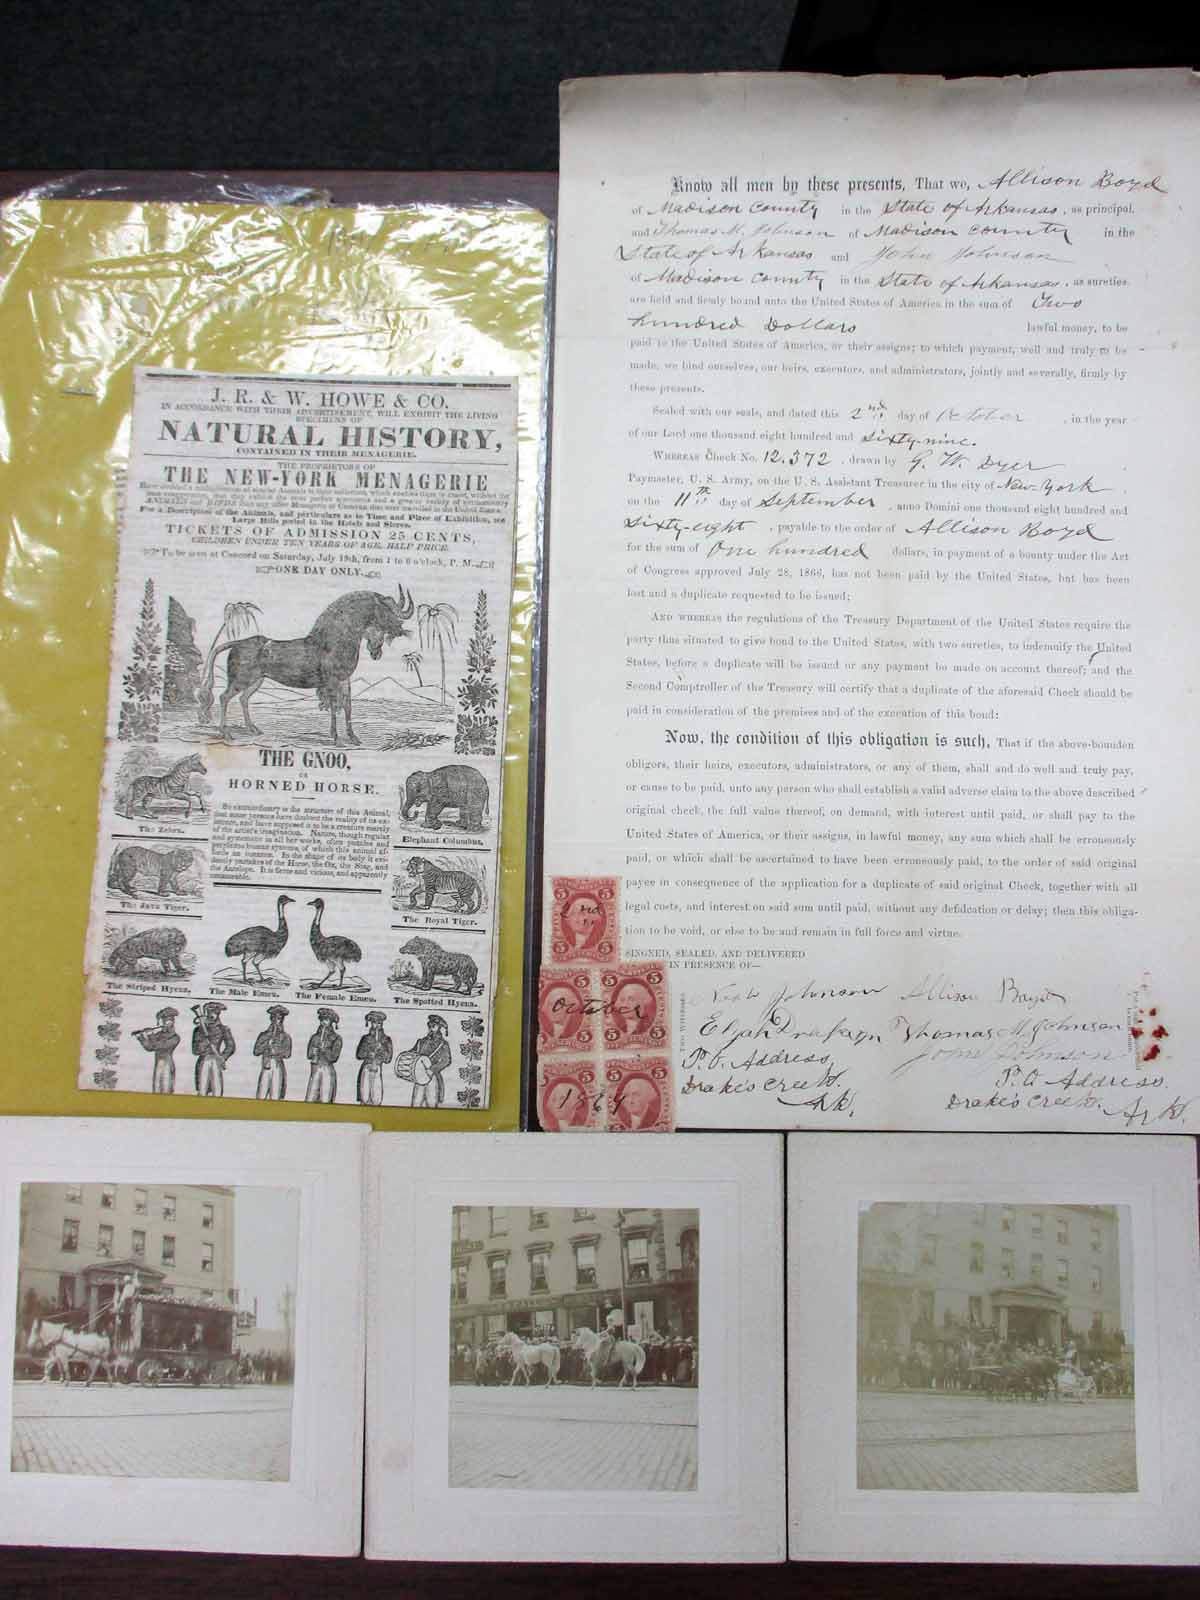 J. R. & W. HOWE & CO.
IN ACCORDANCE WITH THEIR ADVERTISEMENT, WILL EXHIBIT THE LIVING
SPECIMENS OF
NATURAL HISTORY,
CONTAINED IN THEIR MENAGERIE.
THE PROPRIETORS OF
THE NEW-YORK MENAGERIE
For a Description of the Animals, and particulars as to Time and Place of Exhibition, see
Large Bills posted in the Hotels and Stores.
TICKETS OF ADMISSION 25 CENTS,
CHILDREN UNDER TEN YEARS OF AGE, HALF PRICE.
To be seen at Concord on Saturday, July 19th, from 1 to 6 o'clock, P. M.
ONE DAY ONLY.
THE GNOO,
OR
HORNED HORSE.
So extraordinary is the structure of this Animal,
that some persons have doubted the reality of its ex-
istence, and have supposed it to be a creature merely
of the artist's imagination. Nature, though regular
and systematic in all her works, often puzzles and
perplexes human systems, of which this animal af-
fords an instance. In the shape of its body it evi-
dently partakes of the Horse, the Ox, the Stag, and
the Antelope. It is fierce and vicious, and apparently
untameable.
The Zebra.
Elephant Columbus.
The Java Tiger.
The Royal Tiger.
The Striped Hyena.
The Male Emeu.
The Female Emeu.
The Spotted Hyena.
Know all men by these presents, That we, Allison Boyd
of Madison County in the State of Arkansas, as principal,
and Thomas M. Johnson of Madison County in the
State of Arkansas and John Johnson
of Madison County in the State of Arkansas, as sureties,
are held and firmly bound unto the United States of America in the sum of Two
hundred Dollars lawful money, to be
paid to the United States of America, or their assigns; to which payment, well and truly to be
made, we bind ourselves, our heirs, executors, and administrators, jointly and severally, firmly by
these presents.
Sealed with our seals, and dated this 2nd day of October, in the year
of our Lord one thousand eight hundred and sixty-nine.
WHEREAS Check No. 12.372, drawn by G. W. Dyer
Paymaster, U. S. Army, on the U. S. Assistant Treasurer in the city of New-York,
on the 11th day of September, anno Domini one thousand eight hundred and
sixty-eight, payable to the order of Allison Boyd
for the sum of One hundred dollars, in payment of a bounty under the Act
of Congress approved July 28, 1866, has not been paid by the United States, but has been
lost and a duplicate requested to be issued;
AND WHEREAS the regulations of the Treasury Department of the United States require the
party thus situated to give bond to the United States, with two sureties, to indemnify the United
States, before a duplicate will be issued or any payment be made on account thereof; and the
Second Comptroller of the Treasury will certify that a duplicate of the aforesaid Check should be
paid in consideration of the premises and of the execution of this bond:
Now, the condition of this obligation is such, That if the above-bounden
obligors, their heirs, executors, administrators, or any of them, shall and do well and truly pay,
or cause to be paid, unto any person who shall establish a valid adverse claim to the above described
original check, the full value thereof, on demand, with interest until paid, or shall pay to the
United States of America, or their assigns, in lawful money, any sum which shall be erroneously
paid, or which shall be ascertained to have been erroneously paid, to the order of said original
payee in consequence of the application for a duplicate of said original Check, together with all
legal costs, and interest on said sum until paid, without any defalcation or delay; then this obliga-
tion to be void, or else to be and remain in full force and virtue.
SIGNED, SEALED, AND DELIVERED
IN PRESENCE OF—
Johnson Allison Boyd
Thomas M. Johnson
John Johnson
P. O. Address,
Drake's Creek,
Ark.
P. O. Address
Drake's Creek,
Ark.
TWO WITNESSES
5 5
2nd
5 5
October
5 5
1869